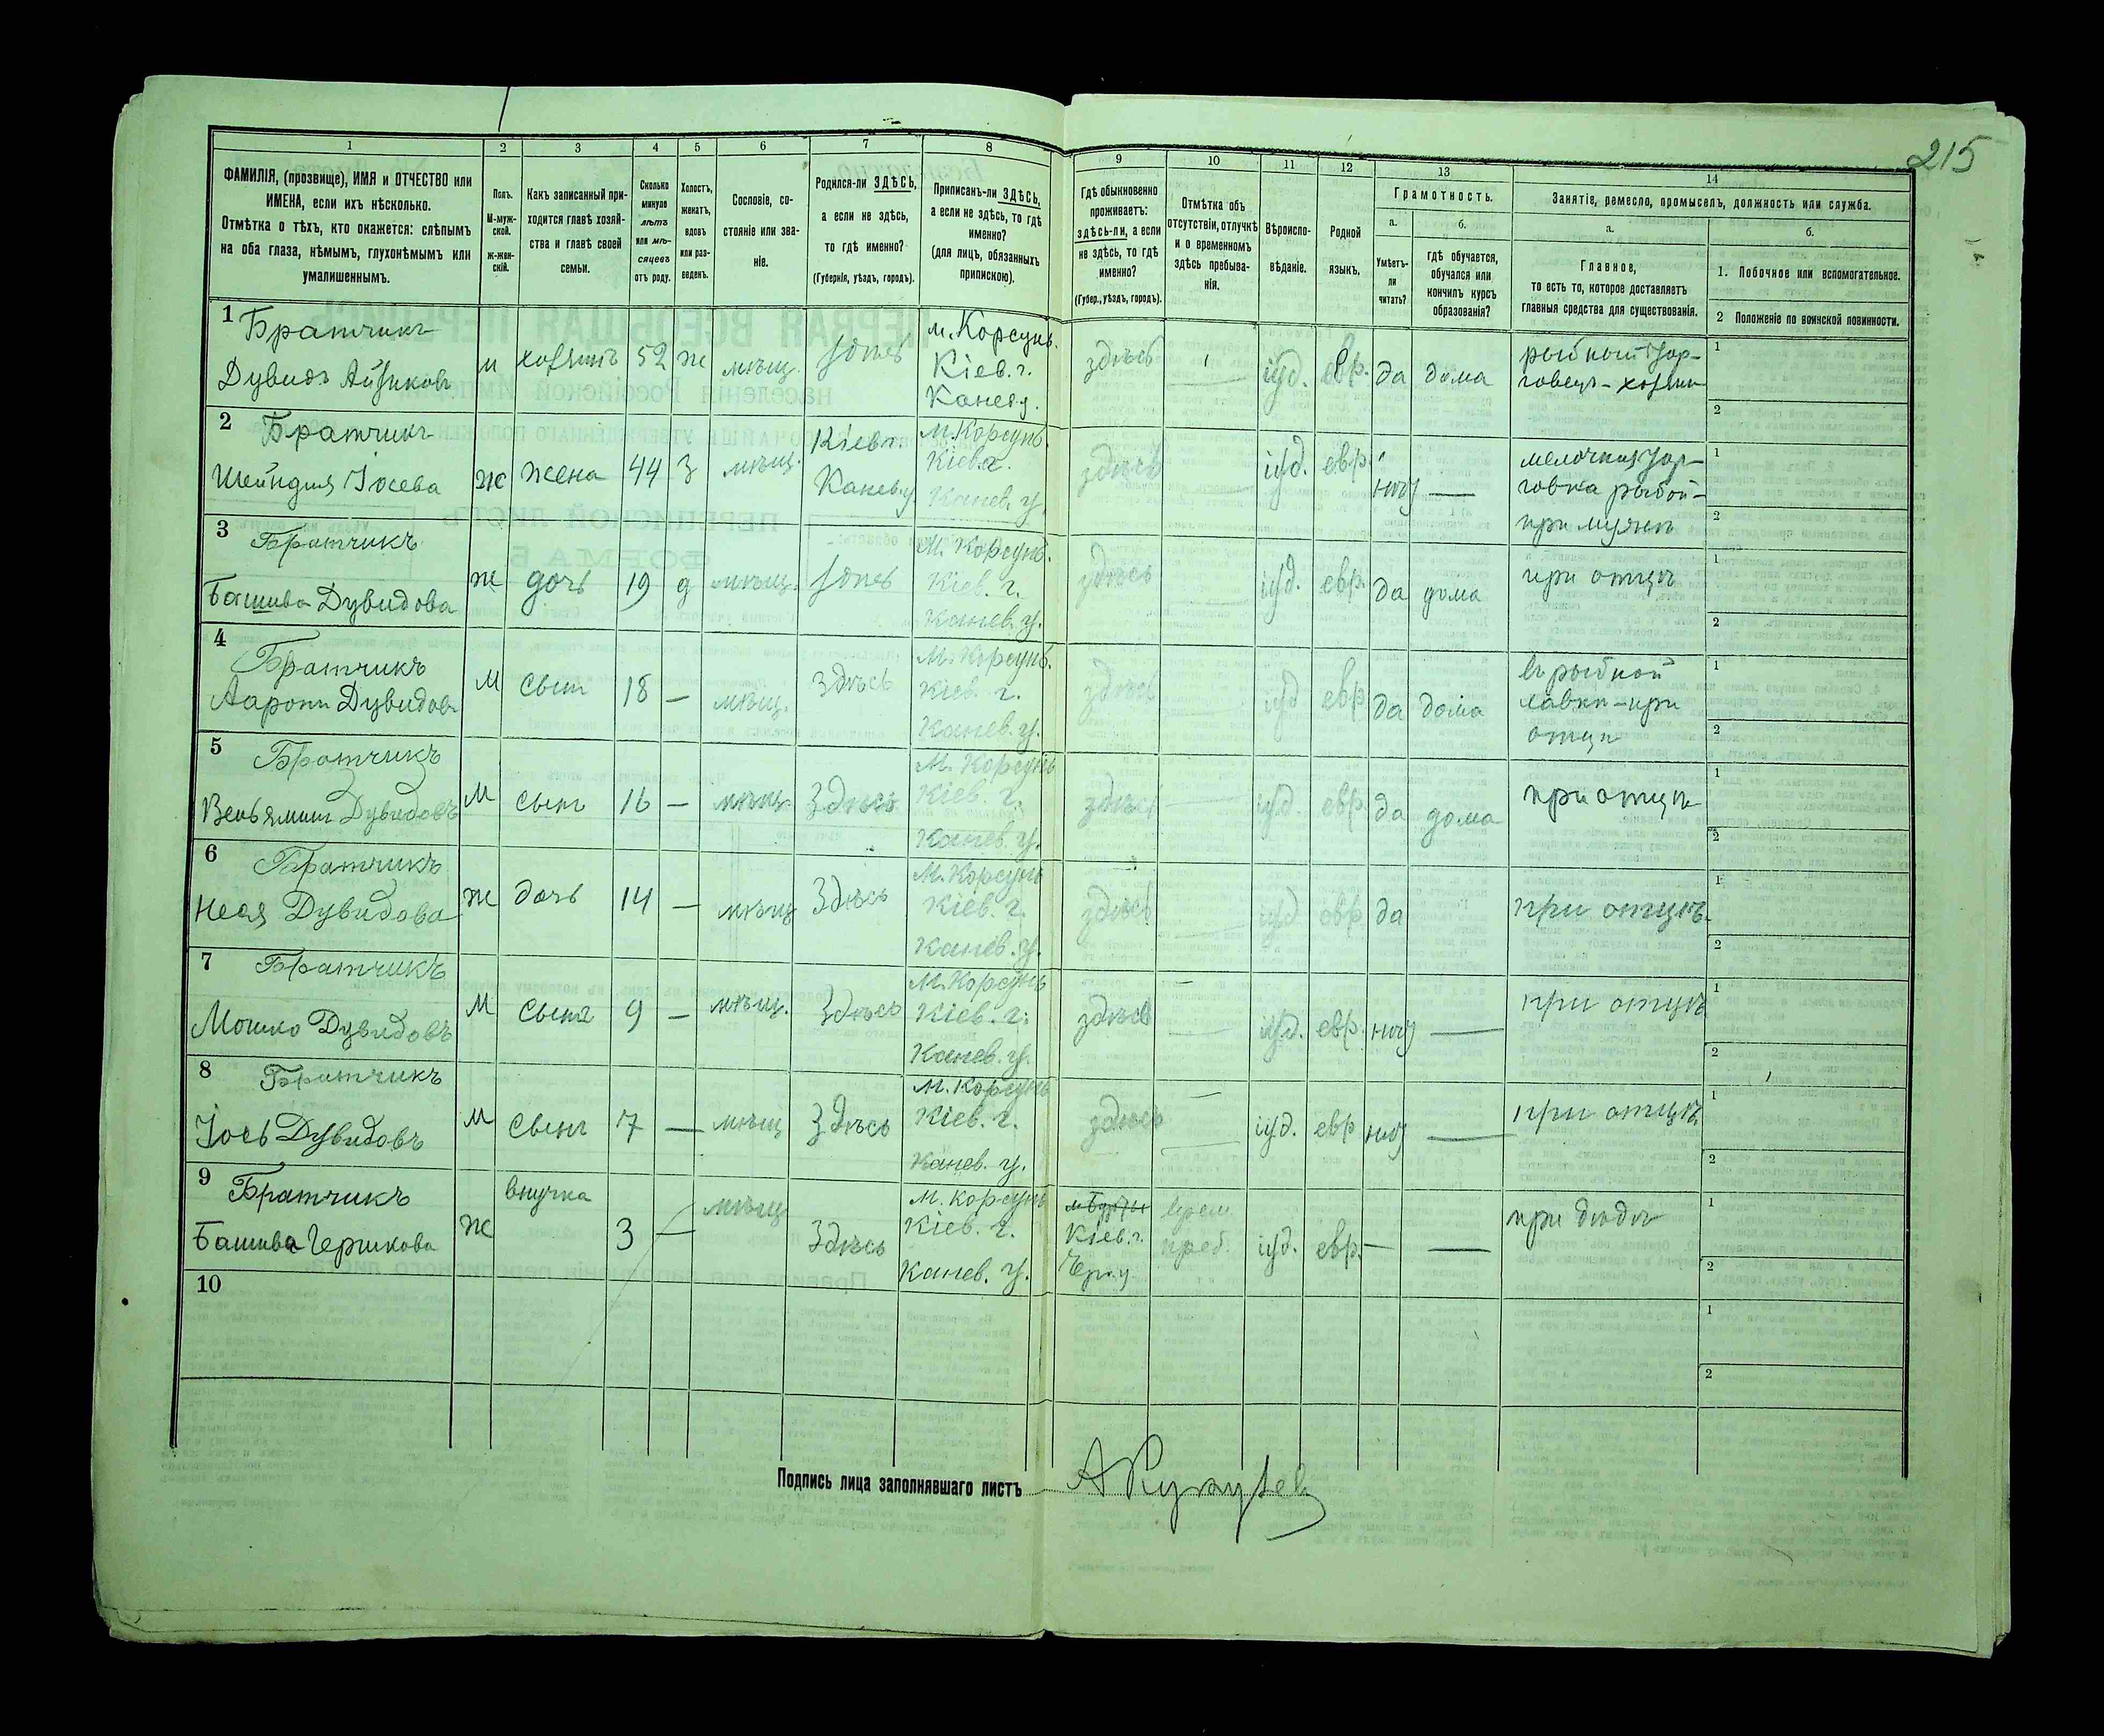 215
1 2 3 4 5 6 7 8 9 10 11 12 13 14
ФАМИЛІЯ, (прозвище), ИМЯ и ОТЧЕСТВО или
ИМЕНА, если ихъ нѣсколько.
Отмѣтка о тѣхъ, кто окажется: слѣпымъ
на оба глаза, нѣмымъ, глухонѣмымъ или
умалишеннымъ.
Полъ.
М-муж-
ской.
ж-жен-
скій.
Какъ записанный при-
ходится главѣ хозяй-
ства и главѣ своей
семьи.
Сколько
минуло
лѣтъ
или мѣ-
сяцевъ
отъ роду.
Холостъ,
женатъ,
вдовъ
или раз-
веденъ.
Сословіе, со-
стояніе или зва-
ніе.
Родился-ли ЗДѢСЬ,
а если не здѣсь,
то гдѣ именно?
(Губернія, уѣздъ, городъ).
Приписанъ-ли ЗДѢСЬ,
а если не здѣсь, то гдѣ
именно?
(для лицъ, обязанныхъ
припискою).
Гдѣ обыкновенно
проживаетъ:
здѣсь-ли, а если
не здѣсь, то гдѣ
именно?
(Губер., уѣздъ, городъ).
Отмѣтка объ
отсутствіи, отлучкѣ
и о временномъ
здѣсь пребыва-
ніи.
Вѣроиспо-
вѣданіе.
Родной
языкъ.
Грамотность.
а.
Умѣетъ-
ли
читать?
б.
гдѣ обучается,
обучался или
кончилъ курсъ
образованія?
Занятіе, ремесло, промыселъ, должность или служба.
а.
Главное,
то есть то, которое доставляетъ
главныя средства для существованія.
б.
1. Побочное или вспомогательное.
2 Положеніе по воинской повинности.
1 Братчикъ
Дувидъ Айзиковъ
м хозяинъ 52 ж мѣщ. здѣсь
м. Корсунь.
Кіев. г.
Канев у.
здѣсь іуд. евр. да дома
рыбный тор-
говецъ - хозяин
1
2
2 Братчикъ
Шейндля Іосева
ж жена 44 з мѣщ.
Кіев г.
Канев. у
м. Корсунь.
Кіев. г.
Канев. у.
здѣсь іуд. евр. нѣт —
мелочная тор-
говка рыбой -
при мужѣ
1
2
3 Братчикъ
Башива Дувидова
ж дочь 19 д мѣщ. здѣсь
М. Корсунь.
Кіев. г.
Канев. у.
здѣсь іуд. евр. да дома
при отцѣ
1
2
4 Братчикъ
Ааронъ Дувидов
М сынъ 18 — мѣщ. здѣсь
М. Корсунь.
Кіев. г.
Канев. у.
здѣсь іуд евр. да дома
въ рыбной
лавкѣ - при
отцѣ
1
2
5 Братчикъ
Веньяминъ Дувидовъ
М сынъ 16 — мѣщ. Здѣсь
М. Корсунь
Кіев. г.
Канев. у.
здѣсь іуд. евр. да дома
при отцѣ
1
2
6 Братчикъ
Несея Дувидова
ж дочь 14 — мѣщ Здѣсь
М. Корсунь
Кіев. г.
Канев. у.
здѣсь іуд евр. да
при отцѣ.
1
2
7 Братчикъ
Мошко Дувидовъ
М сынъ 9 — мѣщ. Здѣсь
М. Корсунь
Кіев. г.
Канев. у.
здѣсь іуд. евр. нѣт —
при отцѣ
1
2
8 Братчикъ
Іось Дувидовъ
М сынъ 7 — мѣщ Здѣсь
М. Корсунь
Кіев. г.
Канев. у.
здѣсь іуд. евр нѣт —
при отцѣ
1
2
9 Братчикъ
Башива Гершкова
ж внучка 3 — мѣщ Здѣсь
М. Корсунь
Кіев. г.
Канев. у.
Кіев. г.
врем.
преб.
іуд. евр. — —
при дѣдѣ
1
2
10
1
2
Подпись лица заполнявшаго листъ